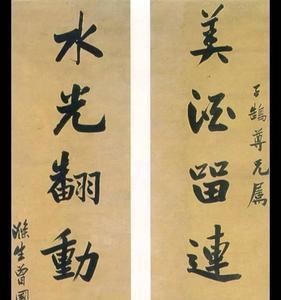 子鵠尊兄屬
美酒留連
水光翻動
滌生曾國